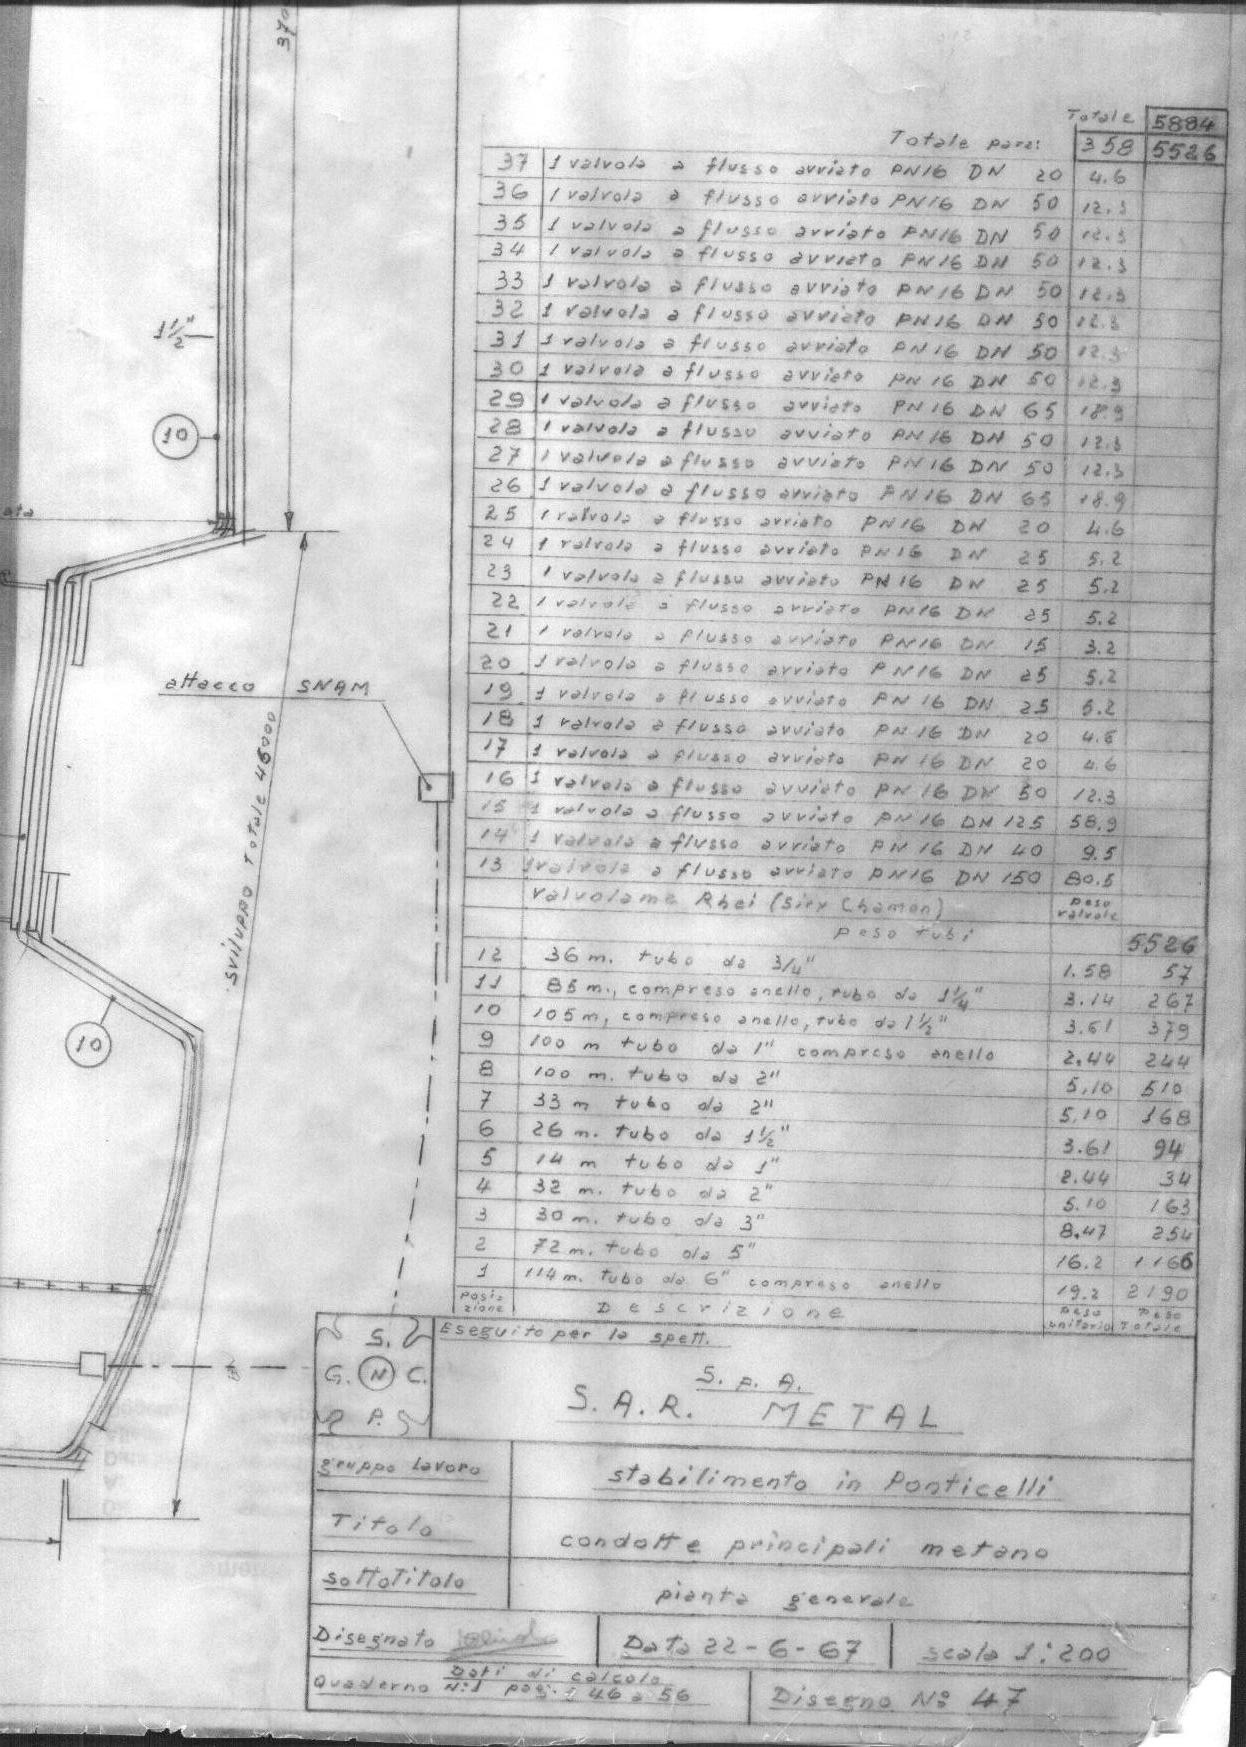 370
1½"
10
ata
attacco SNAM
sviluppo totale 46000
10
Totale 5884
Totale parz: 358 5526
37 1 valvola a flusso avviato PN16 DN 20 4.6
36 1 valvola a flusso avviato PN16 DN 50 12.3
35 1 valvola a flusso avviato PN16 DN 50 12.3
34 1 valvola a flusso avviato PN16 DN 50 12.3
33 1 valvola a flusso avviato PN16 DN 50 12.3
32 1 valvola a flusso avviato PN16 DN 50 12.3
31 1 valvola a flusso avviato PN16 DN 50 12.3
30 1 valvola a flusso avviato PN16 DN 50 12.3
29 1 valvola a flusso avviato PN16 DN 65 18.9
28 1 valvola a flusso avviato PN16 DN 50 12.3
27 1 valvola a flusso avviato PN16 DN 50 12.3
26 1 valvola a flusso avviato PN16 DN 65 18.9
25 1 valvola a flusso avviato PN16 DN 20 4.6
24 1 valvola a flusso avviato PN16 DN 25 5.2
23 1 valvola a flusso avviato PN16 DN 25 5.2
22 1 valvola a flusso avviato PN16 DN 25 5.2
21 1 valvola a flusso avviato PN16 DN 15 3.2
20 1 valvola a flusso avviato PN16 DN 25 5.2
19 1 valvola a flusso avviato PN16 DN 25 5.2
18 1 valvola a flusso avviato PN16 DN 20 4.6
17 1 valvola a flusso avviato PN16 DN 20 4.6
16 1 valvola a flusso avviato PN16 DN 50 12.3
15 1 valvola a flusso avviato PN16 DN 125 58.9
14 1 valvola a flusso avviato PN16 DN 40 9.5
13 1 valvola a flusso avviato PN16 DN 150 80.5
valvolame Rhei (Sirx Chamon) peso valvole
peso tubi 5526
12 36 m. tubo da 3/4" 1.58 57
11 85 m., compreso anello, tubo da 1¼" 3.14 267
10 105 m, compreso anello, tubo da 1½" 3.61 379
9 100 m tubo da 1" compreso anello 2.44 244
8 100 m. tubo da 2" 5.10 510
7 33 m tubo da 2" 5.10 168
6 26 m. tubo da 1½" 3.61 94
5 14 m tubo da 1" 2.44 34
4 32 m. tubo da 2" 5.10 163
3 30 m. tubo da 3" 8.47 254
2 72 m. tubo da 5" 16.2 1166
1 114 m. tubo da 6" compreso anello 19.2 2190
Posizione Descrizione peso unitario Peso Totale
S.
G. N C.
P.
Eseguito per la spett.
S.p.A.
S.A.R. METAL
gruppo lavoro stabilimento in Ponticelli
Titolo condotte principali metano
sottotitolo pianta generale
Disegnato Data 22-6-67 scala 1:200
Dati di calcolo
Quaderno N:1 pag. : 46 a 56 Disegno N: 47